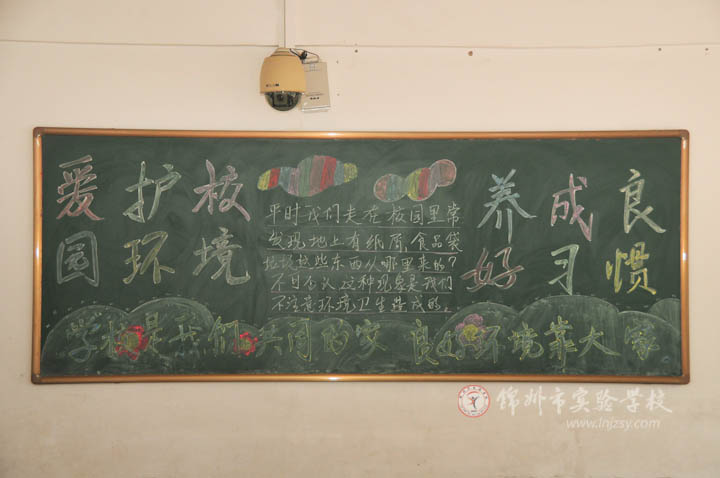 爱护校
园环境
平时我们走在校园里常
发现地上有纸屑、食品袋
垃圾这些东西从哪里来的?
不可否认这种现象是我们
不注意环境卫生造成的。
养成良
好习惯
学校是我们共同的家 良好环境靠大家
锦州市实验学校
www.lnjzsy.com